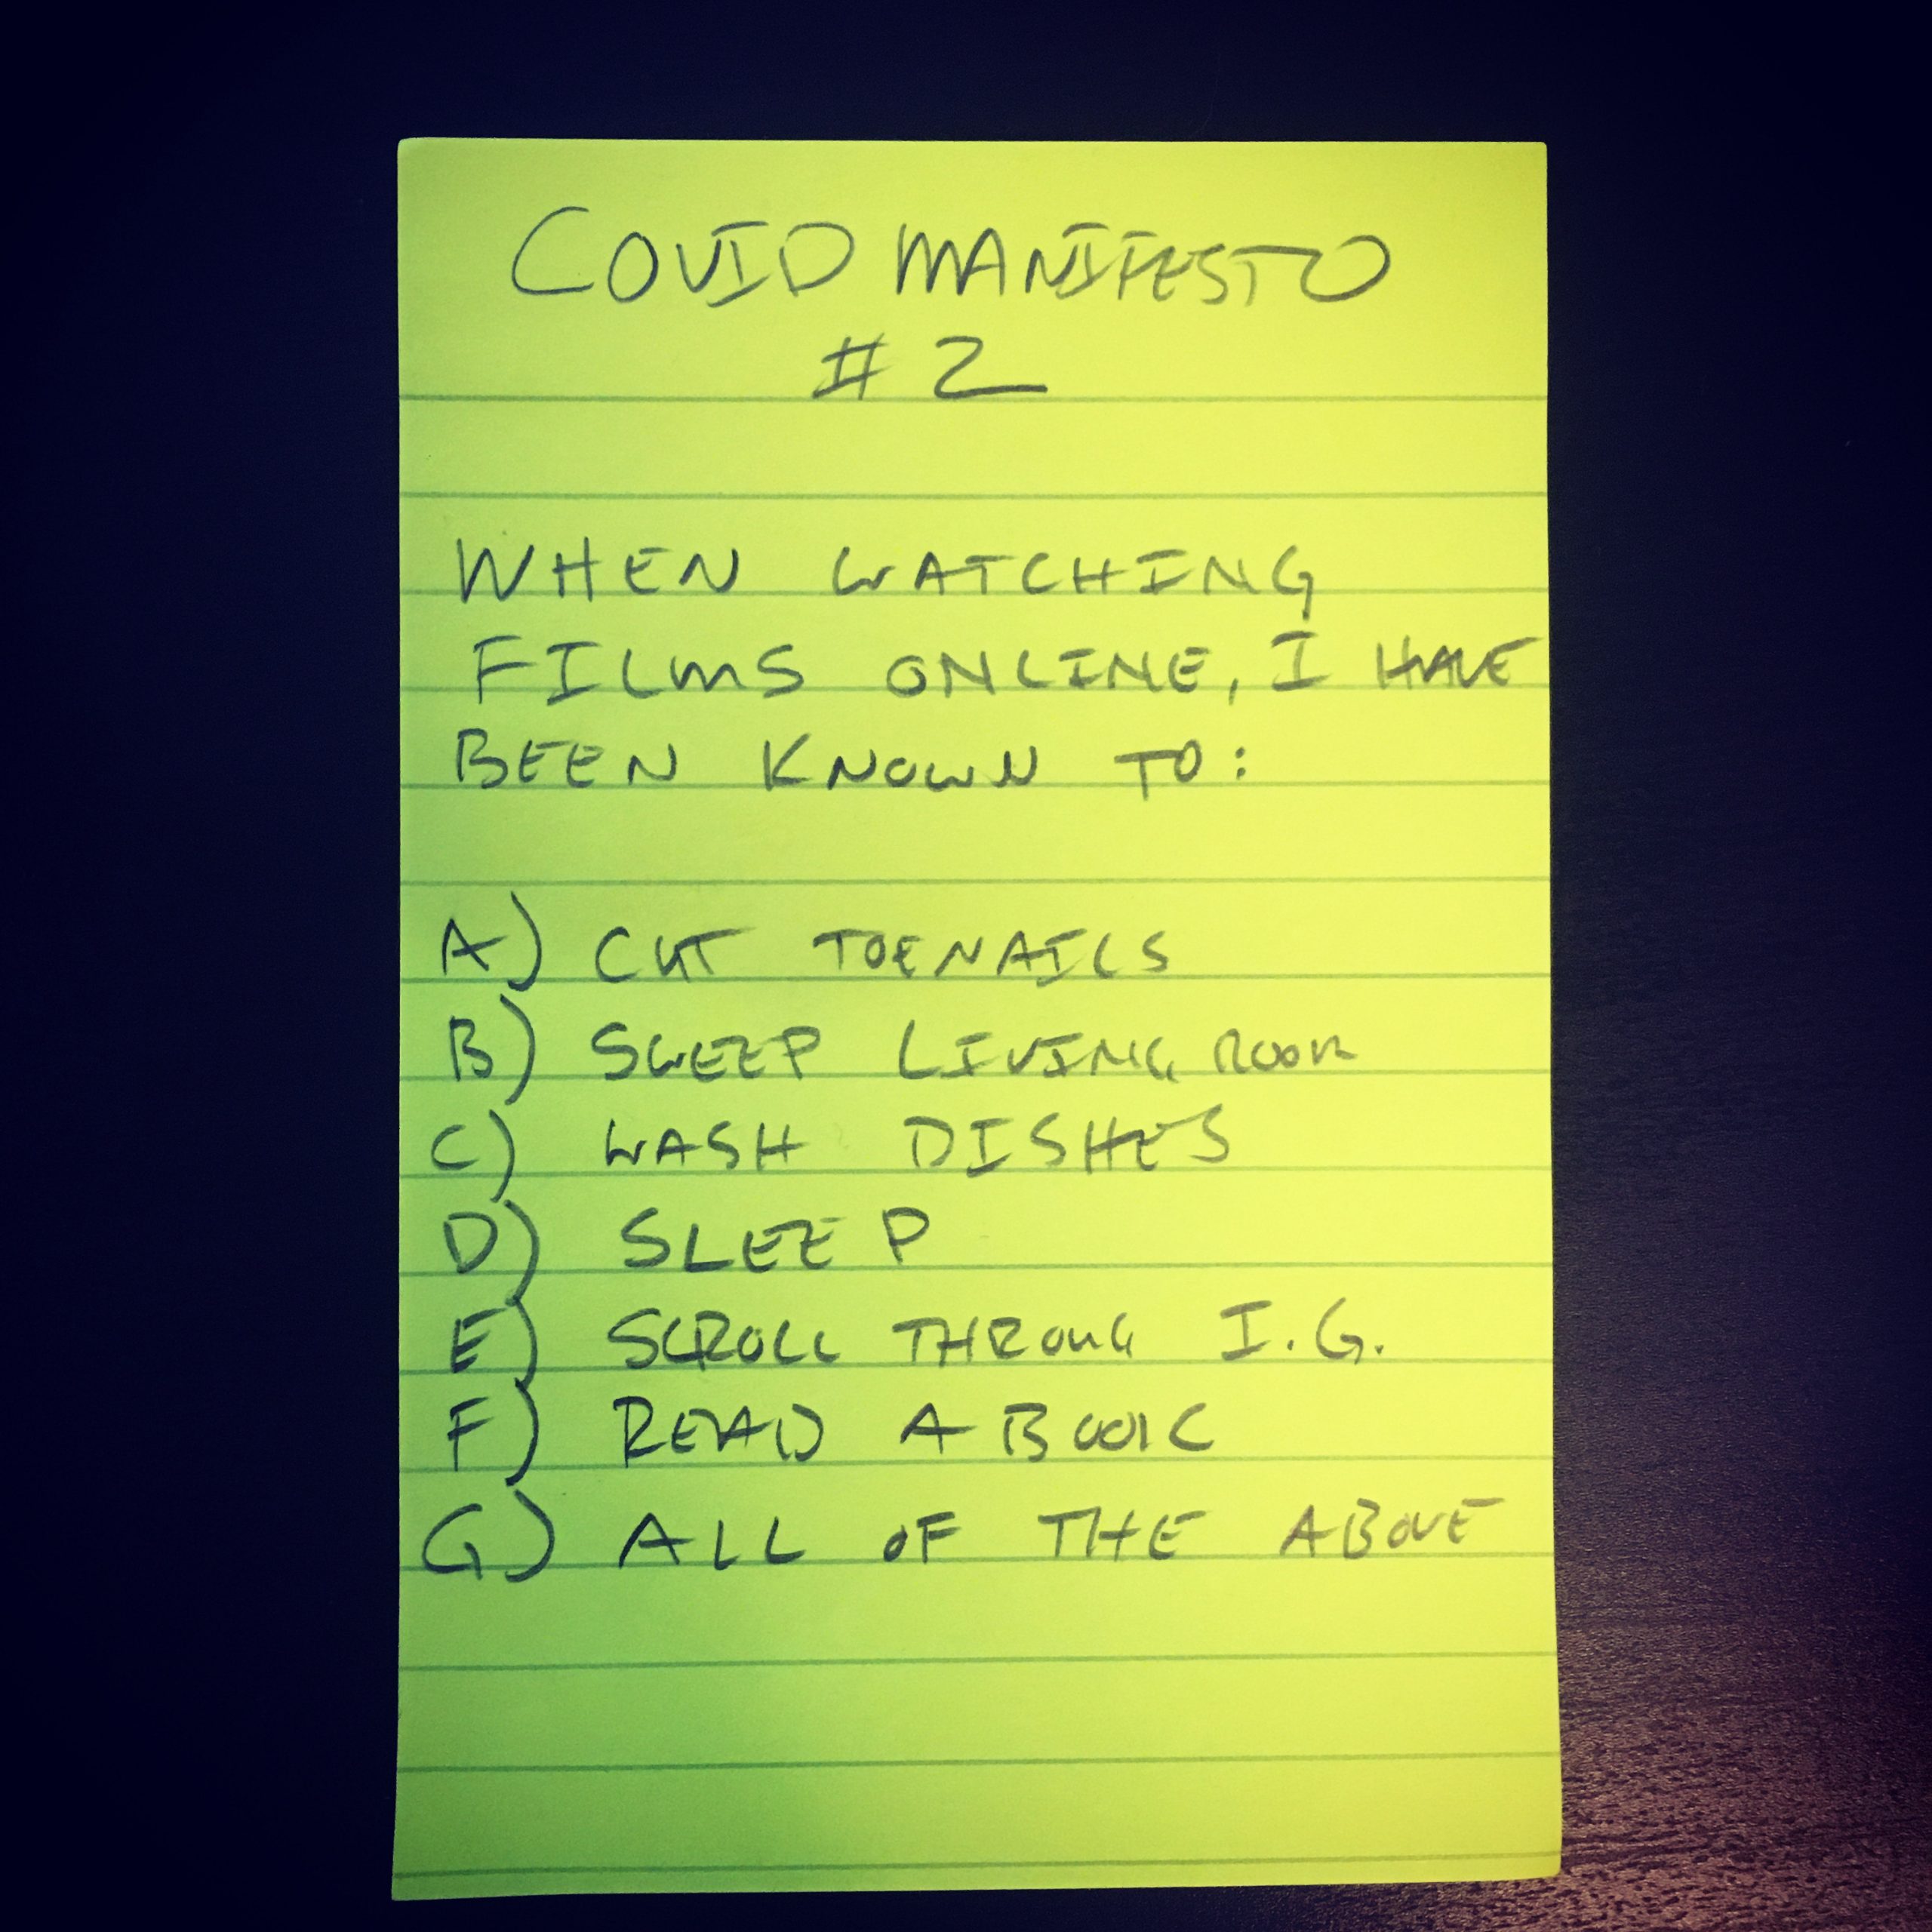 COVID MANIFESTO
# 2
WHEN WATCHING
FILMS ONLINE, I HAVE
BEEN KNOWN TO:
A) CUT TOENAILS
B) SWEEP LIVING ROOM
C) WASH DISHES
D) SLEEP
E) SCROLL THROUG I.G.
F) READ A BOOK
G) ALL OF THE ABOVE